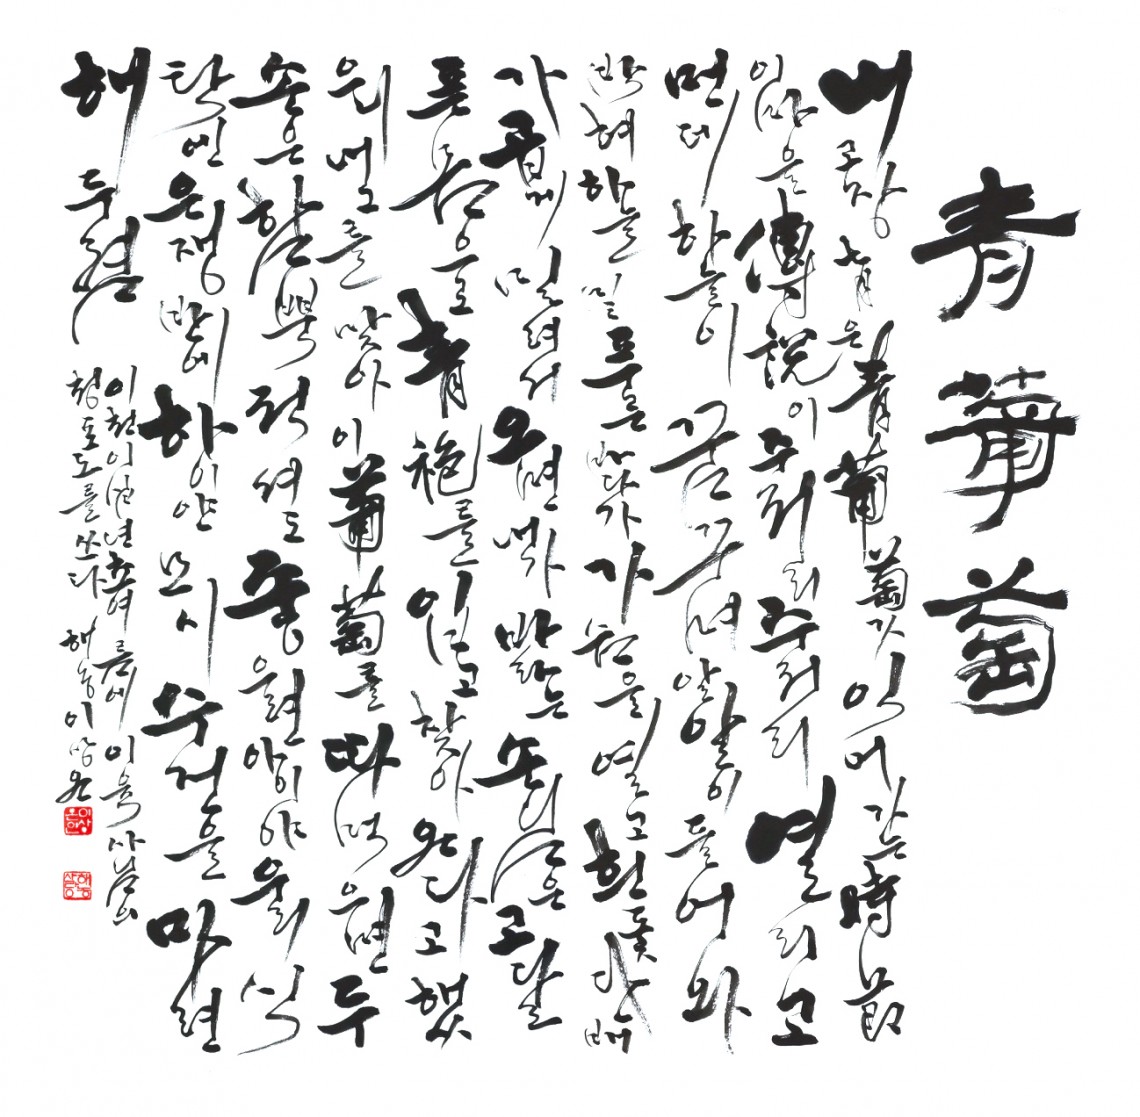 青葡萄
내 고장 七月은 青葡萄가 익어가는 時節
이 마을 傳說이 주저리주저리 열리고
먼데 하늘이 꿈꾸며 알알이 들어와
박혀 하늘 밑 푸른 바다가 가슴을 열고 흰 돛단배
가 곱게 밀려서 오면 내가 바라는 손님은 고달
픈 몸으로 青袍를 입고 찾아온다고 했
으니 내 그를 맞아 이 葡萄를 따먹으면 두
손은 함뿍 적셔도 좋으련 아이야 우리 식
탁엔 은쟁반에 하이얀 모시 수건을 마련
해 두렴
초여름에 이육사님의
청포도를 쓰다